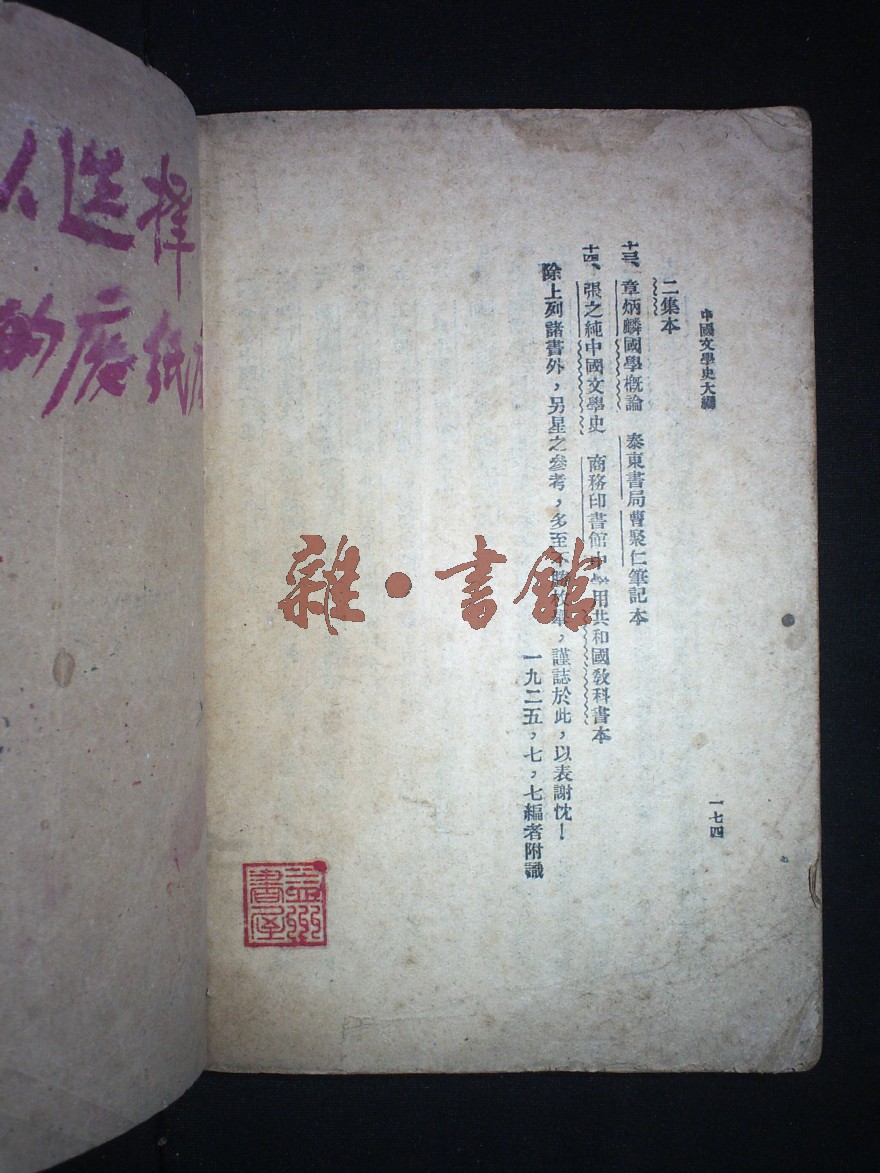 中國文學史大綱
一七四
二集本
十三、章炳麟國學槪論 泰東書局曹聚仁筆記本
十四、張之純中國文學史 商務印書館中學用共和國敎科書本
除上列諸書外，另星之參考，多至不勝枚舉，謹誌於此，以表謝忱！
一九二五，七，七編者附識
雜·書館
选择
的废纸
書屋